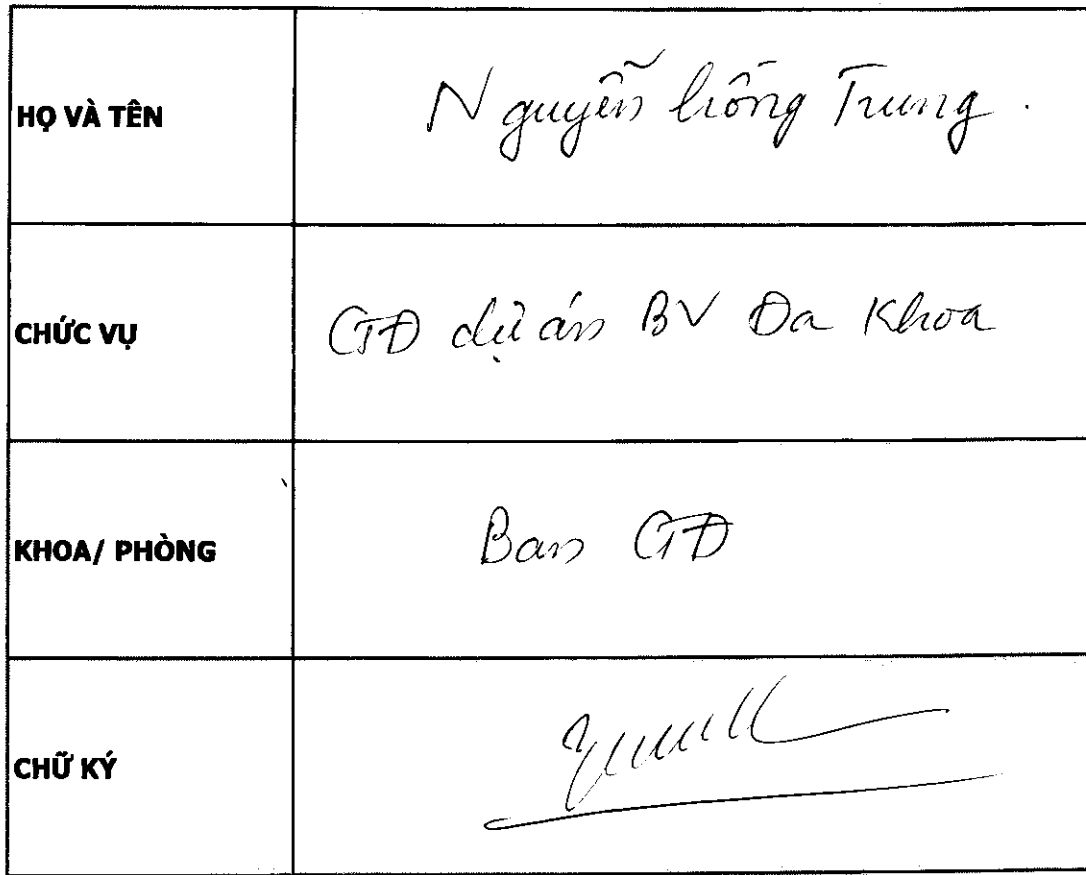 HỌ VÀ TÊN
Nguyễn hồng Trung.
CHỨC VỤ
GĐ dự án BV Đa Khoa
KHOA/ PHÒNG
Ban GĐ
CHỮ KÝ